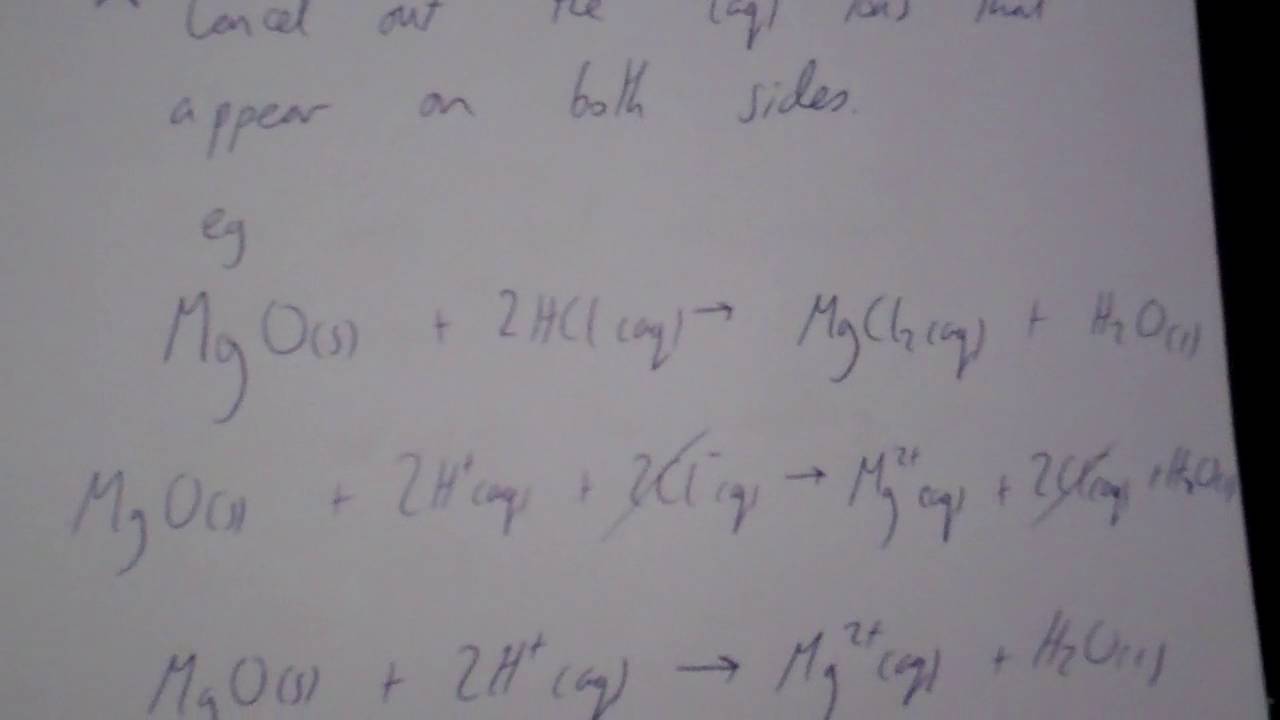 Cancel out the (aq) ions that
appear on both sides.
eg
MgO(s) + 2HCl(aq) → MgCl₂(aq) + H₂O(l)
MgO(s) + 2H⁺(aq) + 2Cl⁻(aq) → Mg²⁺(aq) + 2Cl⁻(aq) + H₂O(l)
MgO(s) + 2H⁺(aq) → Mg²⁺(aq) + H₂O(l)